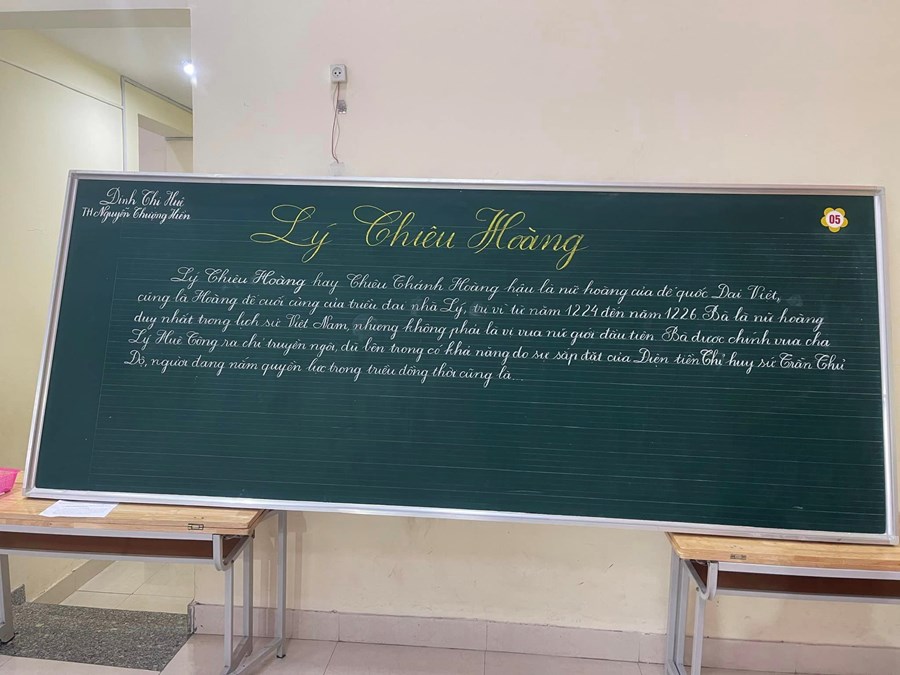 Đinh Thị Huê
TH Nguyễn Thượng Hiền
05
Lý Chiêu Hoàng
Lý Chiêu Hoàng hay Chiêu Thánh Hoàng hậu là nữ hoàng của đế quốc Đại Việt,
cũng là Hoàng đế cuối cùng của triều đại nhà Lý, trị vì từ năm 1224 đến năm 1226. Bà là nữ hoàng
duy nhất trong lịch sử Việt Nam, nhưng không phải là vị vua nữ giới đầu tiên. Bà được chính vua cha
Lý Huệ Tông ra chỉ truyền ngôi, dù bên trong có khả năng do sự sắp đặt của Điện tiền Chỉ huy sứ Trần Thủ
Độ, người đang nắm quyền lực trong triều đồng thời cũng là...